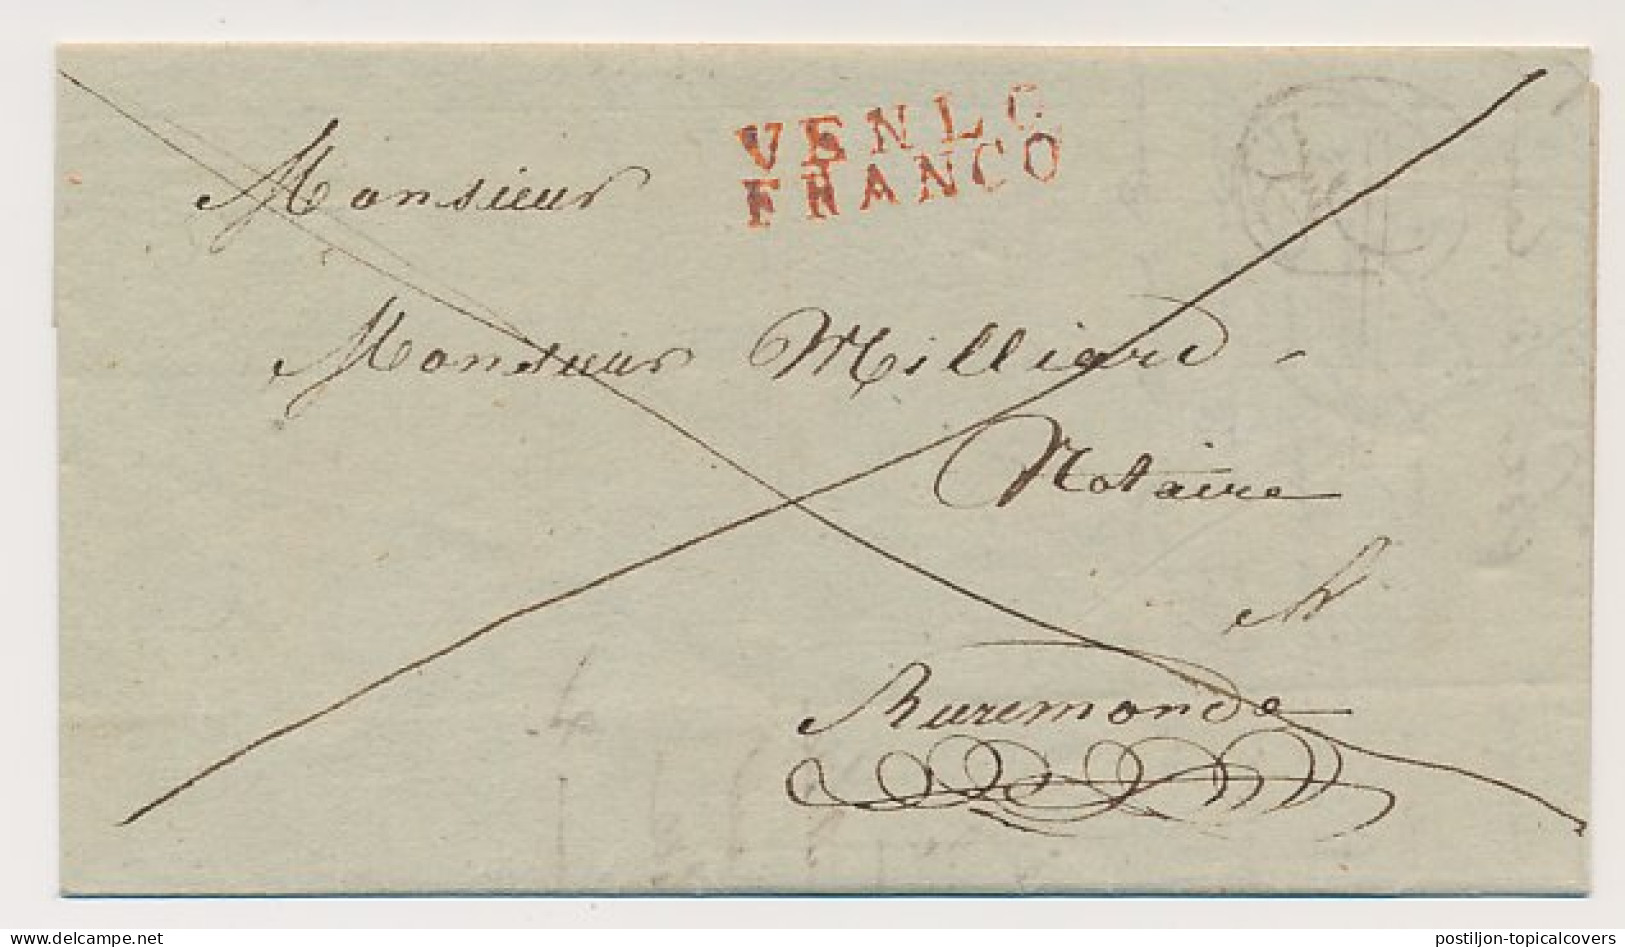 VENLO
FRANCO
Monsieur
Monsieur Milliard
Notaire
A
Ruremonde
delcampe.net
postiljon-topicalcovers